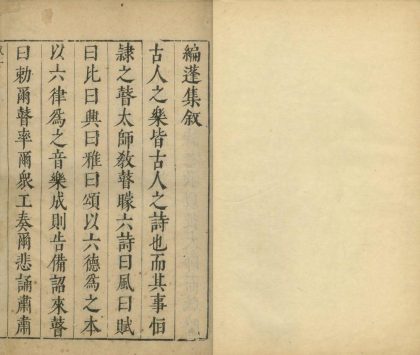 編蓬集叙
古人之樂皆古人之詩也而其事恒
隷之瞽太師教瞽矇六詩曰風曰賦
曰比曰興曰雅曰頌以六德爲之本
以六律爲之音樂成則告備詔來瞽
曰勅爾瞽率爾衆工奏爾悲誦肅肅